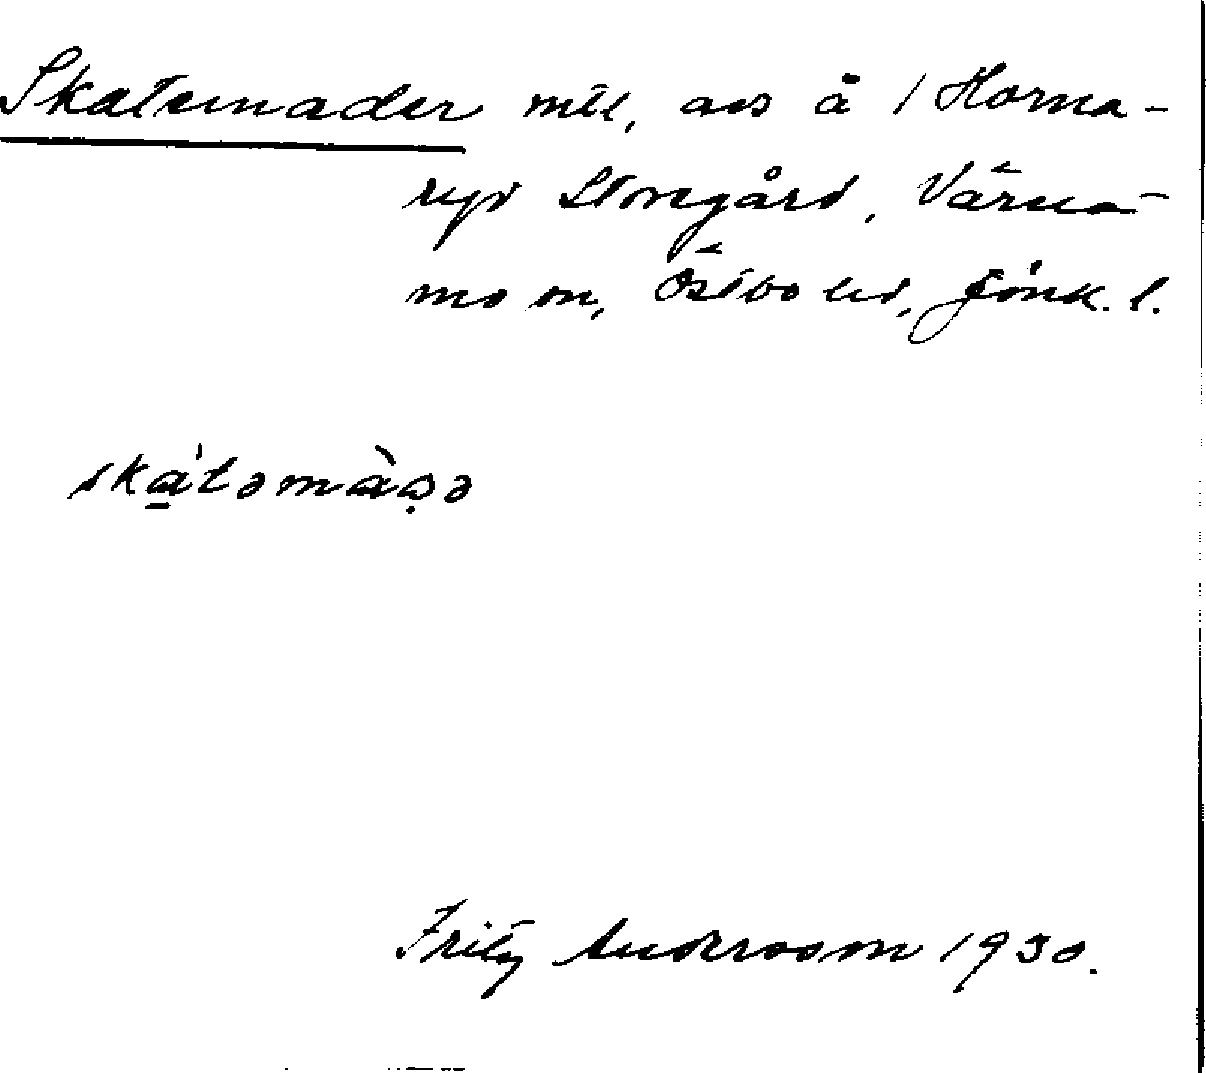 Skatemader mtl, äs å 1 Horna-
ryd Storegård, Värna-
mo sn, Östbo hd, Jönk. l.
skátəmàɒ̣ə
Fritz Andersson 1930.